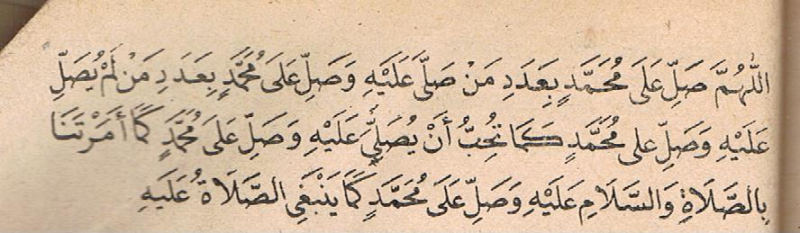 اللَّهُمَّ صَلِّ عَلَى مُحَمَّدٍ بِعَدَدِ مَنْ صَلَّى عَلَيْهِ وَصَلِّ عَلَى مُحَمَّدٍ بِعَدَدِ مَنْ لَمْ يُصَلِّ
عَلَيْهِ وَصَلِّ عَلى مُحَمَّدٍ كَمَا تُحِبُّ أَنْ يُصَلَّى عَلَيْهِ وَصَلِّ عَلَى مُحَمَّدٍ كَمَا أَمَرْتَنَا
بِالصَّلَاةِ وَالسَّلَامِ عَلَيْهِ وَصَلِّ عَلَى مُحَمَّدٍ كَمَا يَنْبَغِي الصَّلَاةُ عَلَيهِ